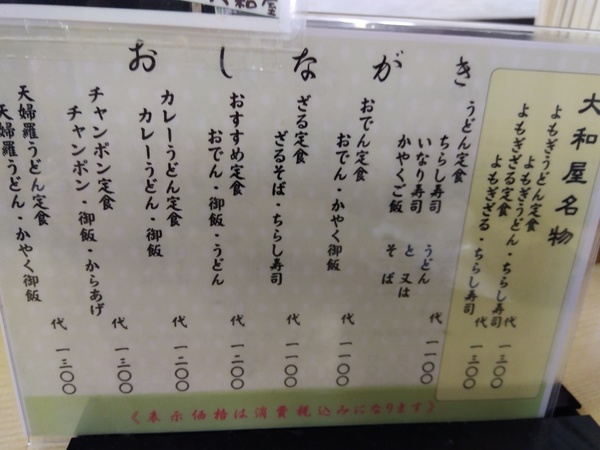 おしながき
大和屋名物
よもぎうどん定食
よもぎうどん・ちらし寿司
代 一三〇〇
よもぎざる定食
よもぎざる・ちらし寿司
代 一三〇〇
うどん定食
ちらし寿司 うどん
いなり寿司 と 又は
かやくご飯 そば
代 一一〇〇
おでん定食
おでん・かやく御飯
代 一一〇〇
ざる定食
ざるそば・ちらし寿司
代 一一〇〇
おすすめ定食
おでん・御飯・うどん
代 一二〇〇
カレーうどん定食
カレーうどん・御飯
代 一二〇〇
チャンポン定食
チャンポン・御飯・からあげ
代 一三〇〇
天婦羅うどん定食
天婦羅うどん・かやく御飯
代 一三〇〇
《表示価格は消費税込みになります》